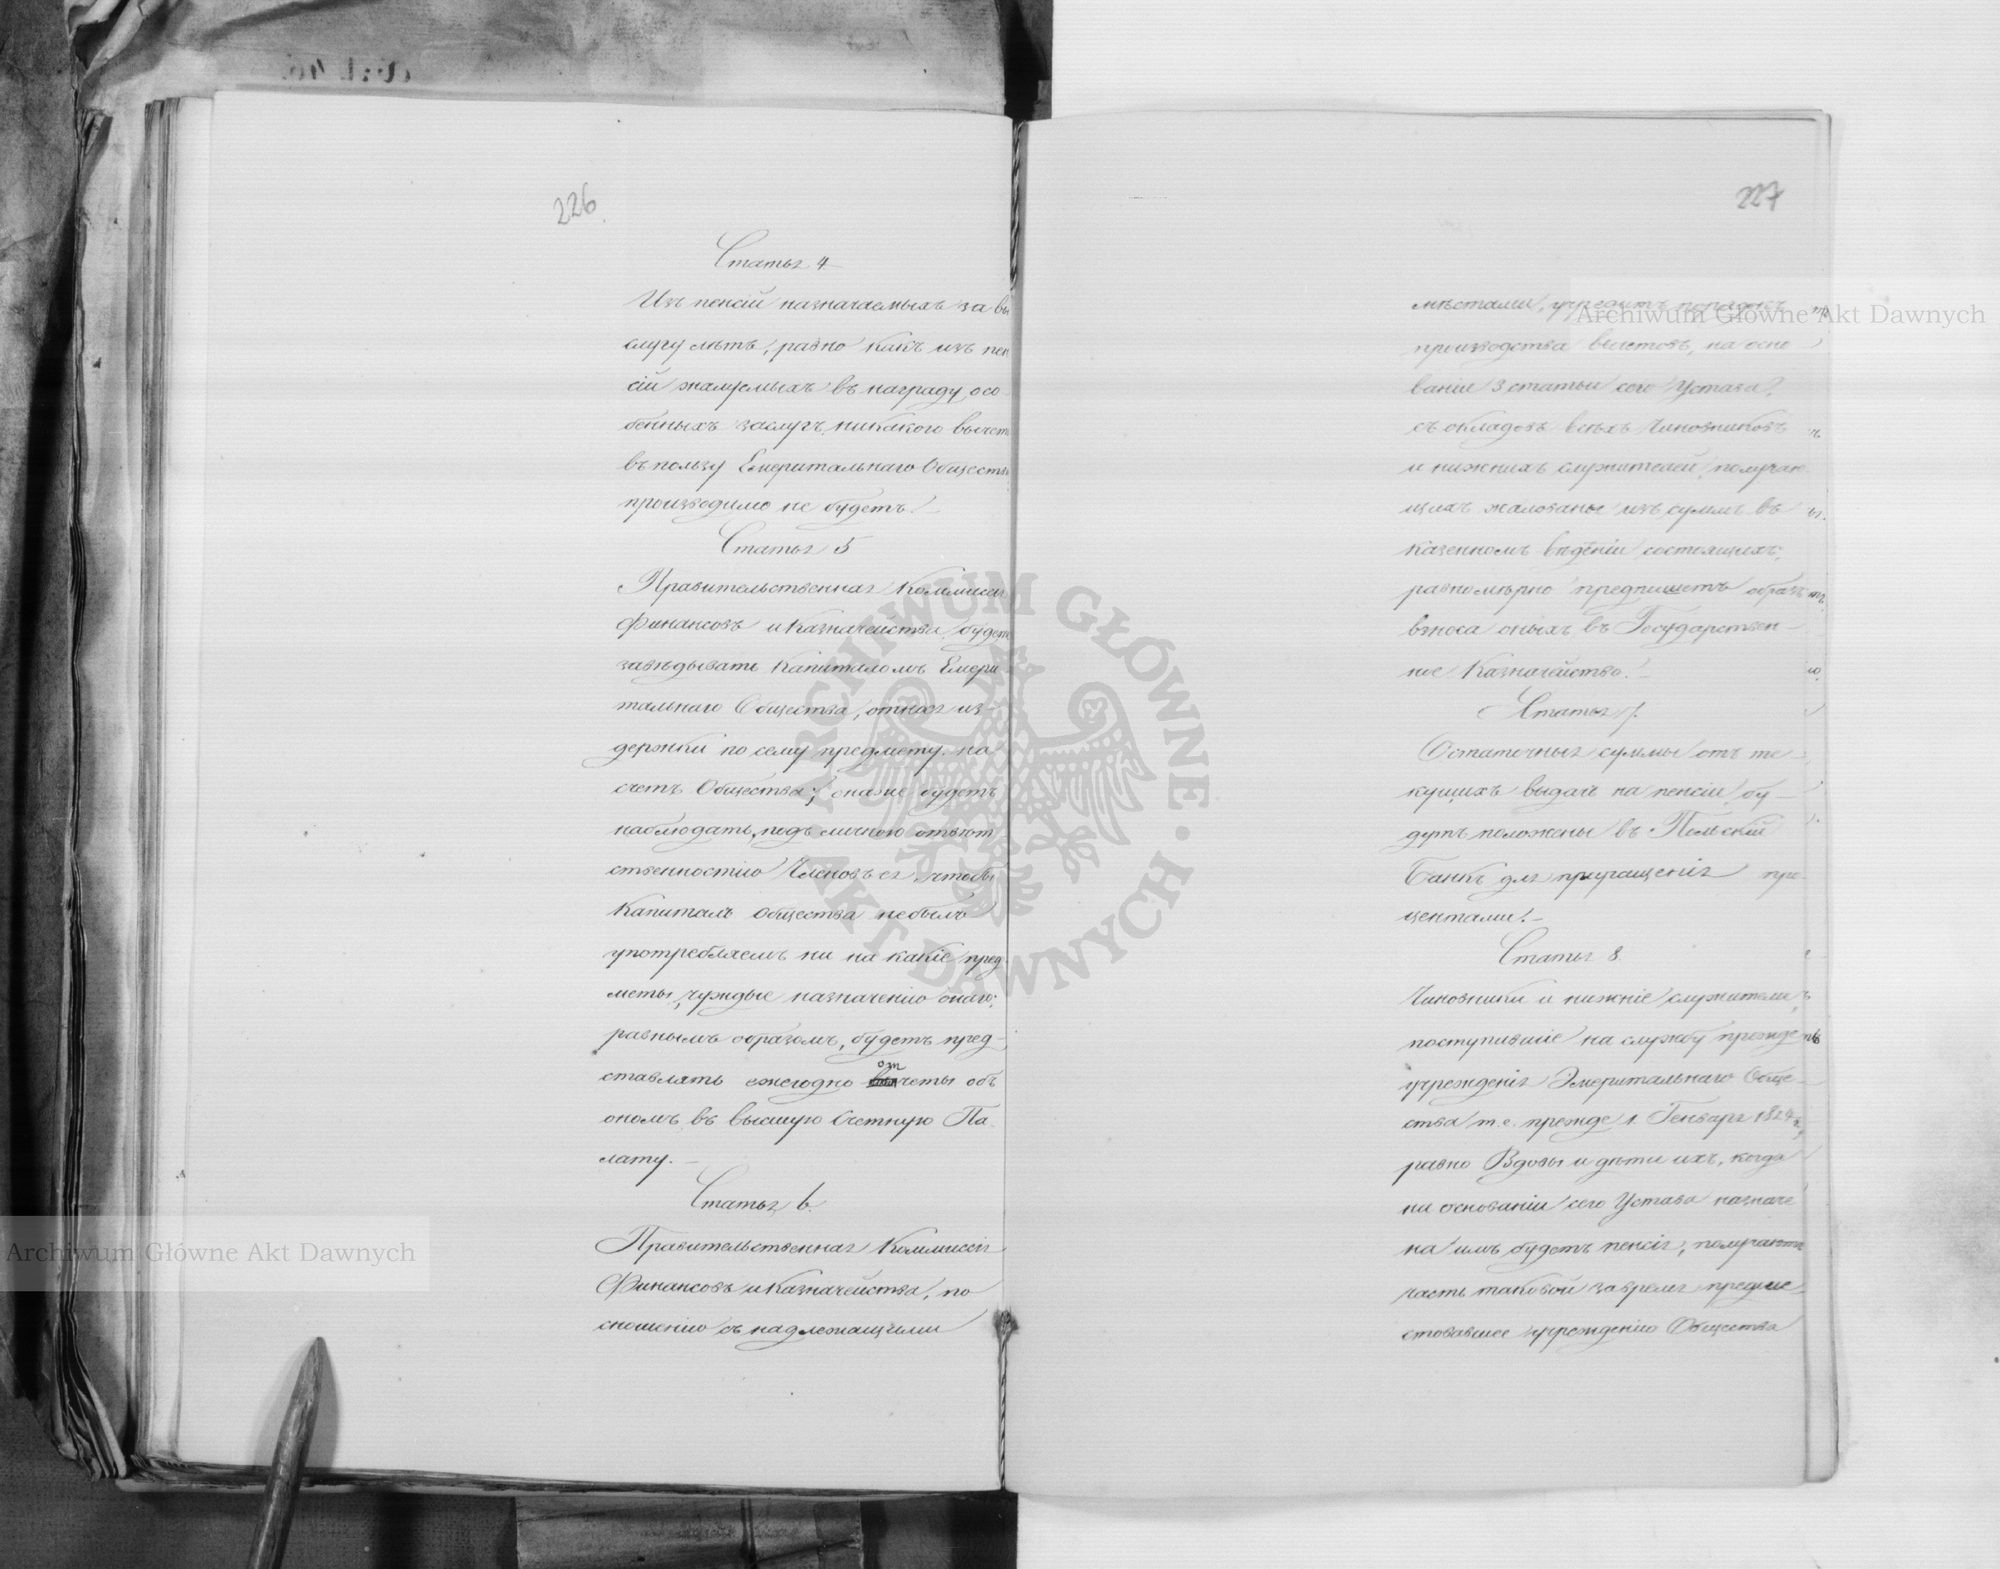 226.
Статья 4
Изъ пенсій назначаемыхъ за вы
слугу лѣтъ, равно какъ изъ пен
сій жалуемыхъ въ награду осо
бенныхъ заслугъ, никакого вычета
въ пользу Емеритальнаго Общества
производимо не будетъ.
Статья 5
Правительственная Коммисія
Финансовъ и Казначейства будетъ
завѣдывать Капиталомъ Емери
тальнаго Общества, относя из-
держки по сему предмету на
счетъ Общества; она же будетъ
наблюдать, подъ личною отвѣт
ственностію Членовъ ея, чтобы
Капиталъ Общества не былъ
употребляемъ ни на какіе пред
меты, чуждые назначенію онаго;
равнымъ образомъ, будетъ пред-
ставлять ежегодно отчеты объ
ономъ въ высшую Счетную Па-
лату.
Статья 6.
Правительственная Коммиссія
Финансовъ и Казначейства, по
сношенію съ надлежащими
227
мѣстами, учредитъ порядокъ
производства вычетовъ, на осно-
ваніи 3 статьи сего Устава,
съ окладовъ всѣхъ Чиновниковъ
и нижнихъ служителей, получаю-
щихъ жалованье изъ суммъ въ
казенномъ вѣдѣніи состоящихъ;
равномѣрно предпишетъ образъ
взноса оныхъ въ Государствен-
ное Казначейство.
Статья 7.
Остаточныя суммы отъ те-
кущихъ выдачъ на пенсіи, бу-
дутъ положены въ Польскій
Банкъ для приращенія про-
центами.
Статья 8
Чиновники и нижніе служители,
поступившіе на службу прежде
учрежденія Эмеритальнаго Обще-
ства т. е. прежде 1. Генваря 1824 г.,
равно Вдовы и дѣти ихъ, когда
на основаніи сего Устава назначе
на имъ будетъ пенсія, получаютъ
часть таковой за время предше-
ствовавшее учрежденію Общества
Archiwum Główne Akt Dawnych
Archiwum Główne Akt Dawnych
ARCHIWUM GŁÓWNE · AKT DAWNYCH ·